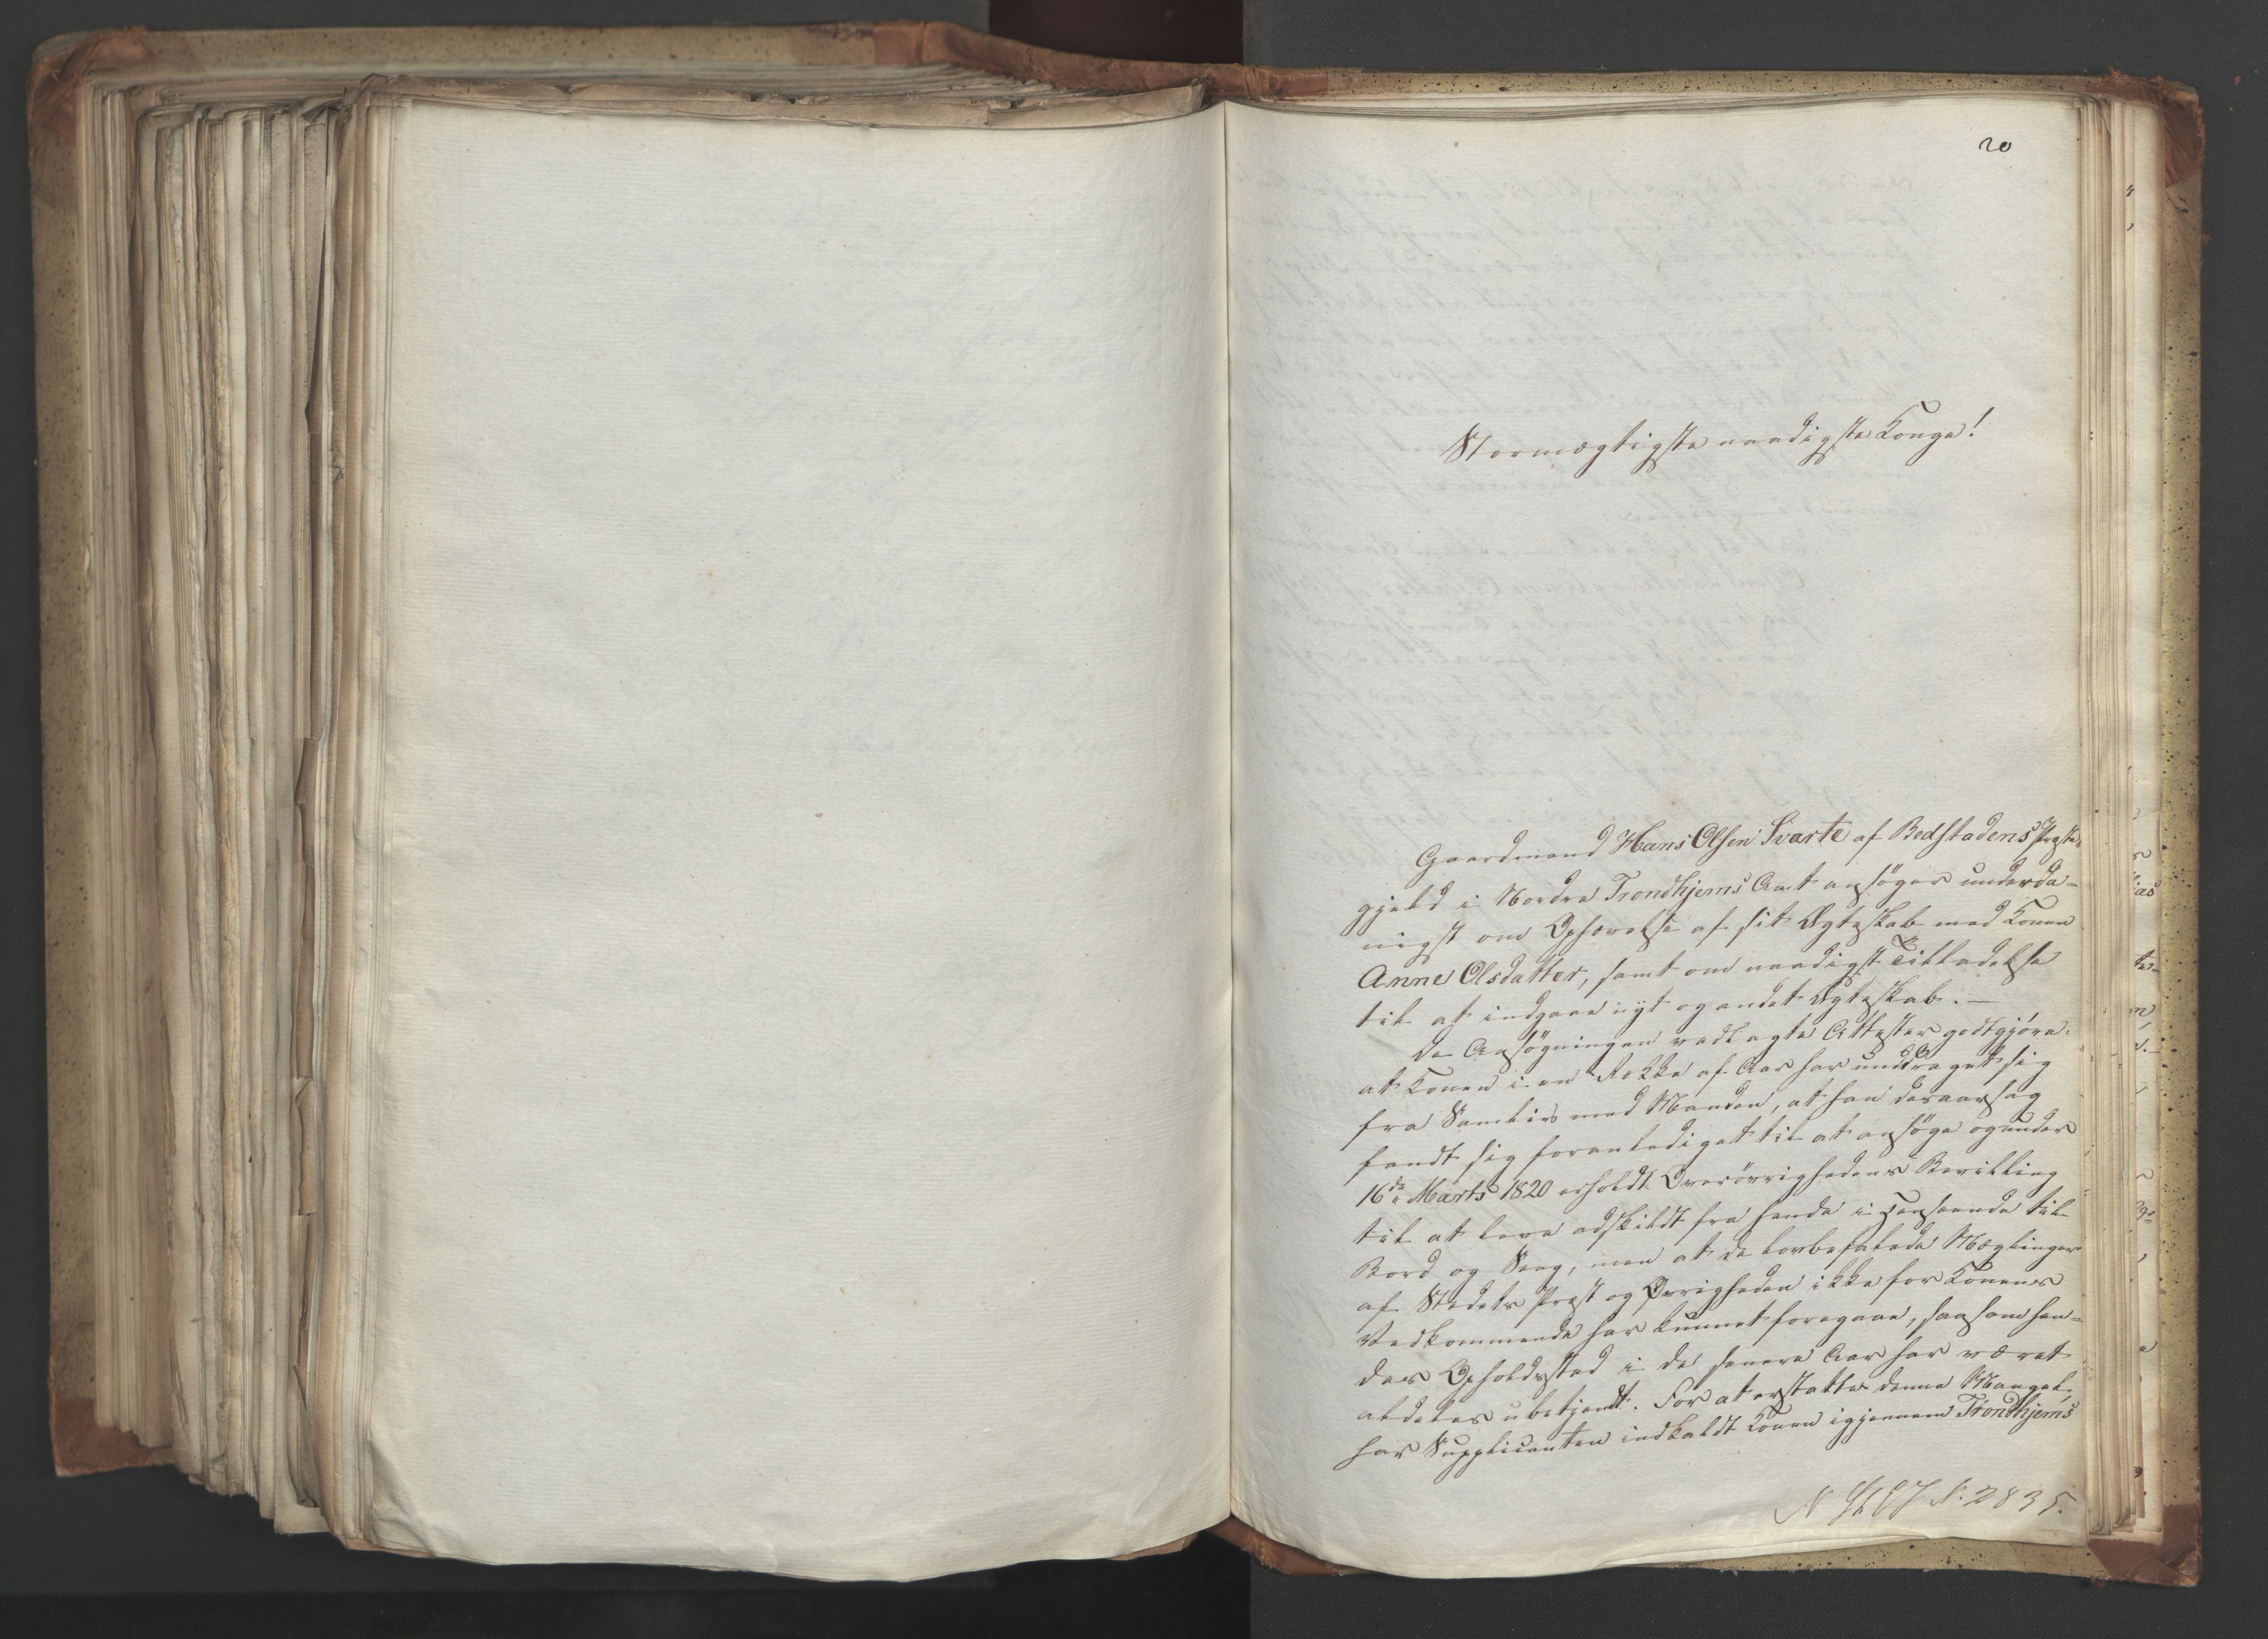 20
Stormægtigste naadigste Konge!
Gaardmand Hans Olsen Svarte af Bedstadens Præste-
gjeld i Nordre Trondhjems Amt ansøger underda-
nigst om Ophævelse af sit Ægteskab med Konen
Anne Olsdatter, samt om naadigst Tilladelse
til at indgaae nyt og andet Ægteskab. —
De Ansøgningen vedlagte Attester godtgjøre:
at Konen i en Række af Aar har unddraget sig
fra Samliv med Manden, at han desaarsag
fandt sig foranlediget til at ansøge og under
16de Marts 1820 erholdt Overøvrighedens Bevilling
til at leve adskildt fra hende i Henseende til
Bord og Seng, men at de lovbefalede Mæglinger
af Stedets Præst og Øvrigheden ikke for Konens
Vedkommende har kunnet foregaae, saasom hen-
des Opholdssted i de senere Aar har været
aldeles ubekjendt. For at erstatte denne Mangel,
har Supplicanten indkaldt Konen igjennem Trondhjems
N. 2835.